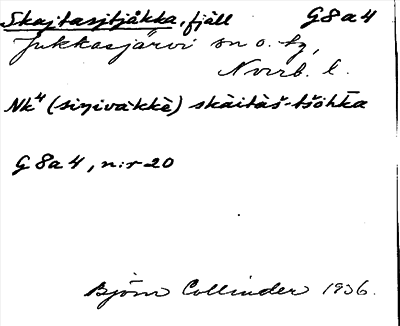 Skajtasjtjåkka, fjäll G8a4
Jukkasjärvi sn o. tg,
Norrb. l.
Nk⁴ (siŋivàkkè) skàitàš-tšåhkka
G8a4, n:r 20
Björn Collinder 1936.